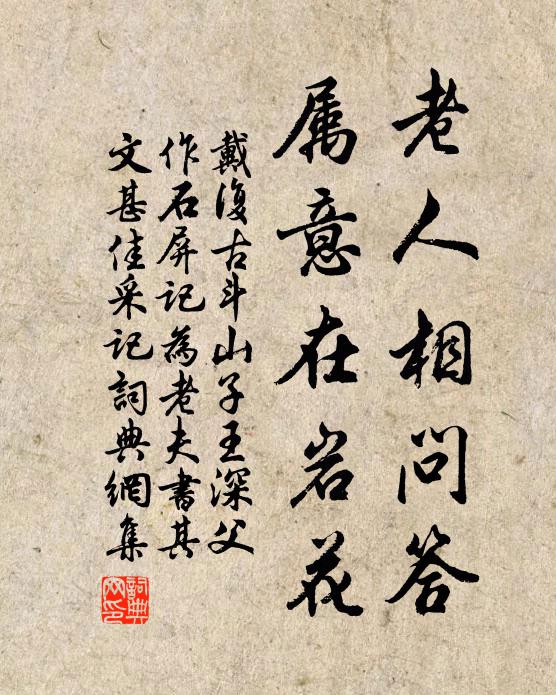 老人相问答
属意在岩花
戴復古斗山子王深父
作石屏记為老夫書其
文甚佳采记詞典網集
詞典網印